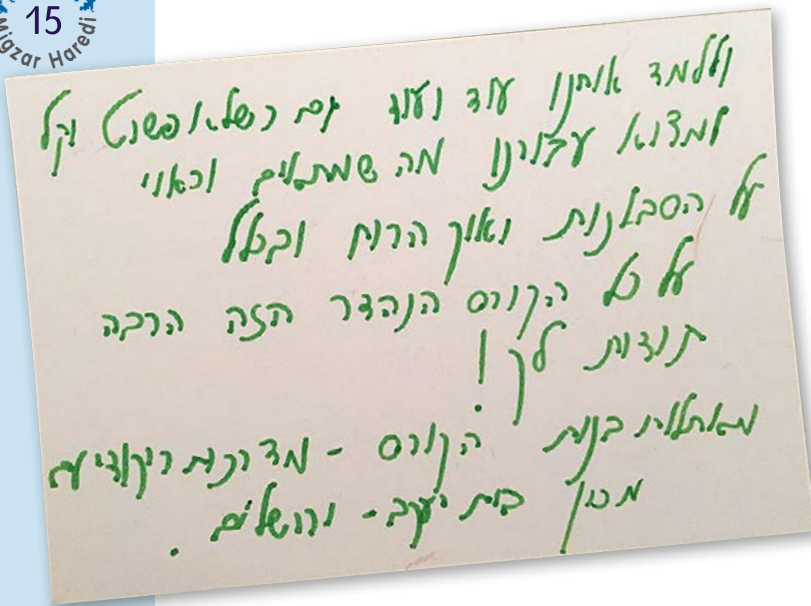 15
Migzar Haredi
וללמד אותנו עוד ועוד גם כשלא פשוט וקל
למצוא עבורנו מה שמתאים וראוי
על הסבלנות ואורך הרוח ובכלל
על כל הקורס הנהדר הזה הרבה
תודות לך!
מאתנו בנות הקורס - מדריכות ריקודי עם
מכון בית יעקב - ירושלים.